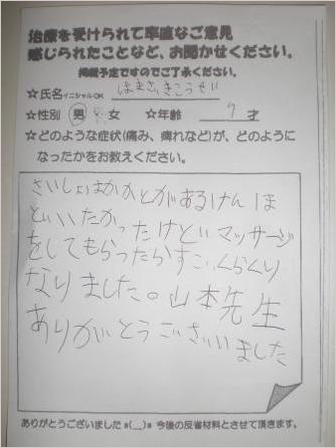 治療を受けられて率直なご意見
感じられたことなど、お聞かせください。
掲載予定ですのでご了承ください。
☆氏名イニシャルOK はまさきこうせい
☆性別 男 女 ☆年齢 9 才
☆どのような症状(痛み、痺れなど)が、どのように
なったかをお教えください。
さいしょはかかとがあるけんほ
どいいたかったけどマッサージ
をしてもらったらすごくらくに
なりました。山本先生
ありがとうございました
ありがとうございました m(__)m 今後の反省材料とさせて頂きます。